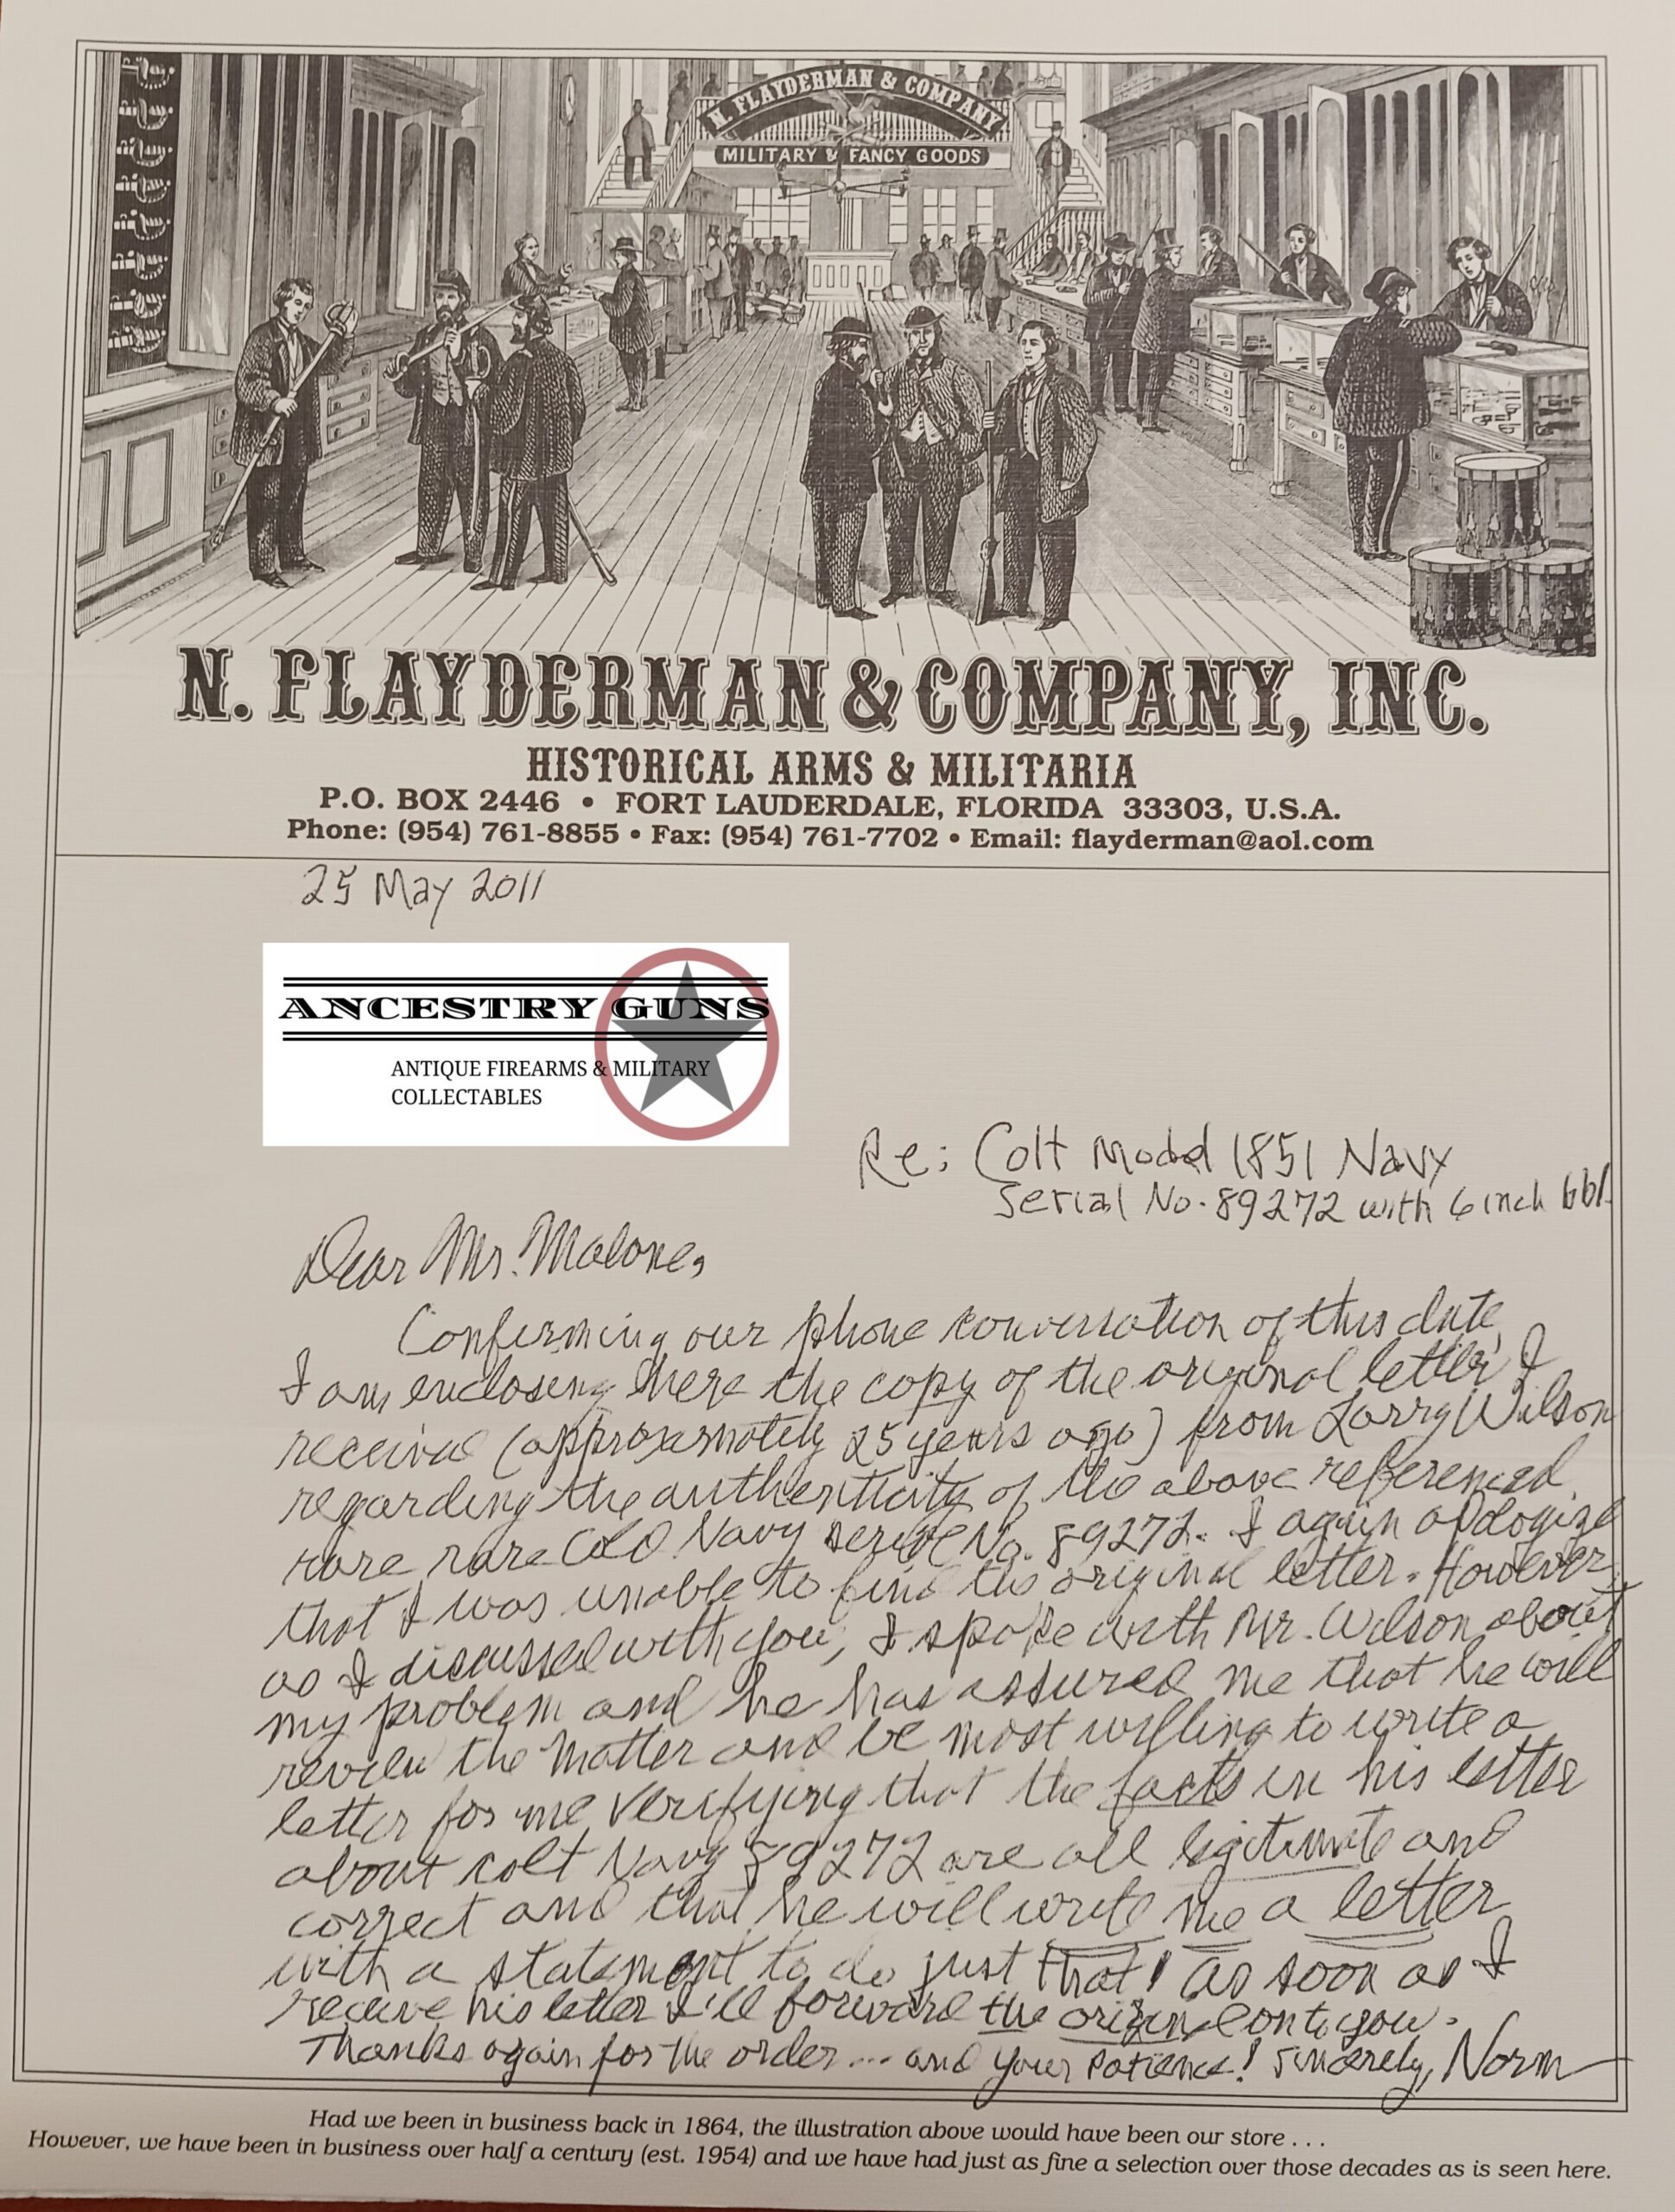 N. FLAYDERMAN & COMPANY
MILITARY & FANCY GOODS
N. FLAYDERMAN & COMPANY, INC.
HISTORICAL ARMS & MILITARIA
P.O. BOX 2446 • FORT LAUDERDALE, FLORIDA 33303, U.S.A.
Phone: (954) 761-8855 • Fax: (954) 761-7702 • Email: flayderman@aol.com
25 May 2011
ANCESTRY GUNS
ANTIQUE FIREARMS & MILITARY
COLLECTABLES
Re: Colt Model 1851 Navy
Serial No. 89272 with 6 inch bbl.
Dear Mr. Malone,
Confirming our phone conversation of this date,
I am enclosing here the copy of the original letter I
received (approximately 25 years ago) from Larry Wilson
regarding the authenticity of the above referenced
rare rare Colt Navy serial No. 89272. I again apologize
that I was unable to find the original letter. However,
as I discussed with you, I spoke with Mr. Wilson about
my problem and he has assured me that he will
review the matter and be most willing to write a
letter for me verifying that the facts in his letter
about Colt Navy 89272 are all legitimate and
correct and that he will write me a letter
with a statement to do just that! as soon as I
receive his letter I'll forward the original on to you.
Thanks again for the order... and your patience! Sincerely, Norm
Had we been in business back in 1864, the illustration above would have been our store . . .
However, we have been in business over half a century (est. 1954) and we have had just as fine a selection over those decades as is seen here.